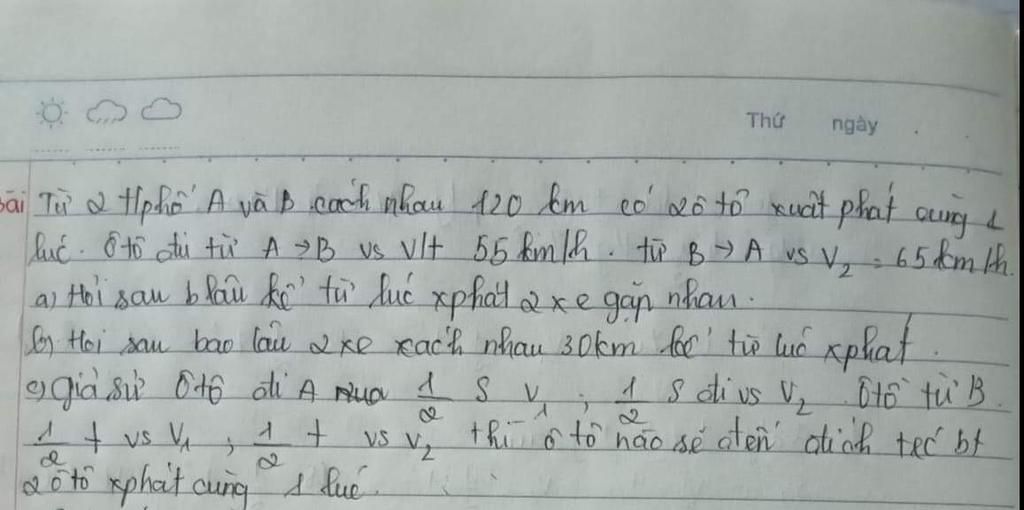 Thứ ngày
Bài Từ 2 t/phố A và B cách nhau 120 km có 2 ô tô xuất phát cùng 1
lúc. Ôtô đi từ A → B vs V/t 55 km/h. từ B → A vs V₂ = 65 km/h.
a) Hỏi sau b lâu kể từ lúc xphát 2 xe gặp nhau.
b) Hỏi sau bao lâu 2 xe cách nhau 30km kể từ lúc xphát.
c) giả sử Ôtô đi A nua 1/2 S V₁ ; 1/2 S đi vs V₂ Ôtô từ B
1/2 t vs V₁ ; 1/2 t vs V₂ thì ô tô nào sẽ đến đích trc bt
2 ô tô xphát cùng 1 lúc.